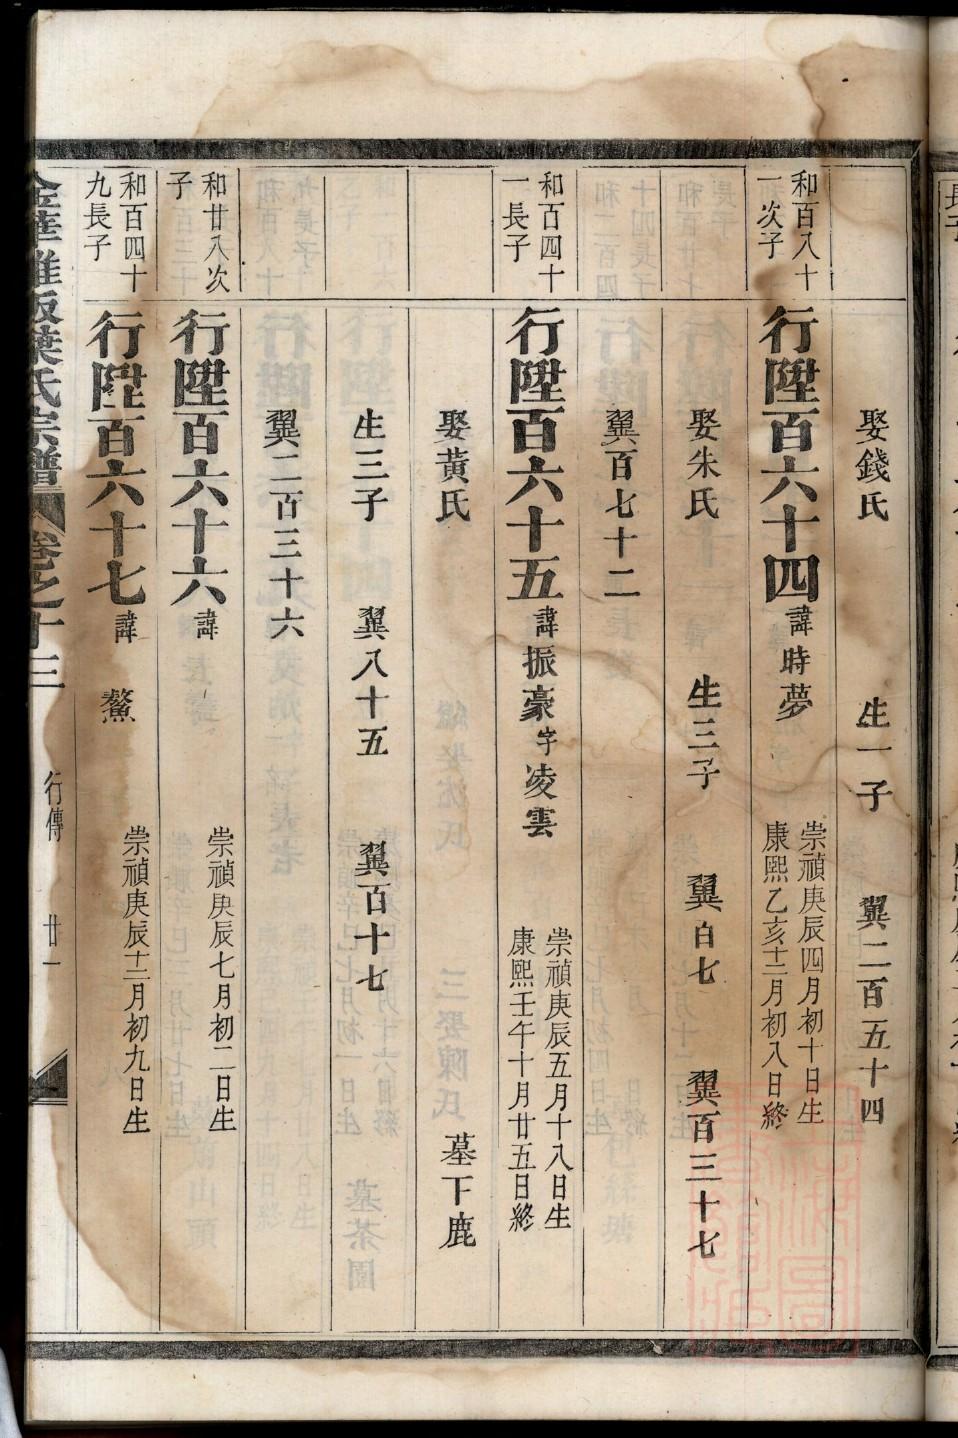 娶錢氏 生一子 翼二百五十四
和百八十一次子
行陞百六十四 諱時夢 崇禎庚辰四月初十日生 康熙乙亥十二月初八日終
娶朱氏 生三子 翼百七 翼百三十七
翼百七十二
和百四十一長子
行陞百六十五 諱振豪 字凌雲 崇禎庚辰五月十八日生 康熙壬午十月廿五日終
娶黃氏 墓下鹿
生三子 翼八十五 翼百十七
翼二百三十六
和廿八次子
行陞百六十六 諱 崇禎庚辰七月初二日生
和百四十九長子
行陞百六十七 諱 鰲 崇禎庚辰十二月初九日生
葉氏宗譜 卷之十三 行傳 廿一